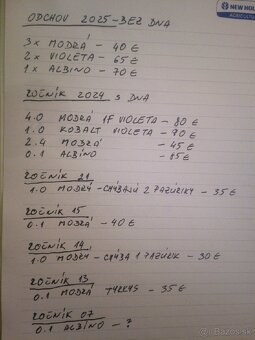 NEW HOLL
AGRICULTU
ODCHOV 2025 - BEZ DNA
3x MODRÁ - 40 €
2x VIOLETA - 65 €
1x ALBÍNO - 70 €
ROČNÍK 2024 S DNA
4.0 MODRÁ 1F VIOLETA - 80 €
1.0 KOBALT VIOLETA - 70 €
2.4 MODRÁ - 45 €
0.1 ALBÍNO - 85 €
ROČNÍK 21
1.0 MODRÝ - CHÝBAJÚ 2 PAZÚRIKY - 35 €
ROČNÍK 15
0.1 MODRÁ - 40 €
ROČNÍK 14
1.0 MODRÝ - CHÝBA 1 PAZÚRIK - 30 €
ROČNÍK 13
0.1 MODRÁ TYRKYS - 35 €
ROČNÍK 07
0.1 ALBÍNO - ?
bazos.sk